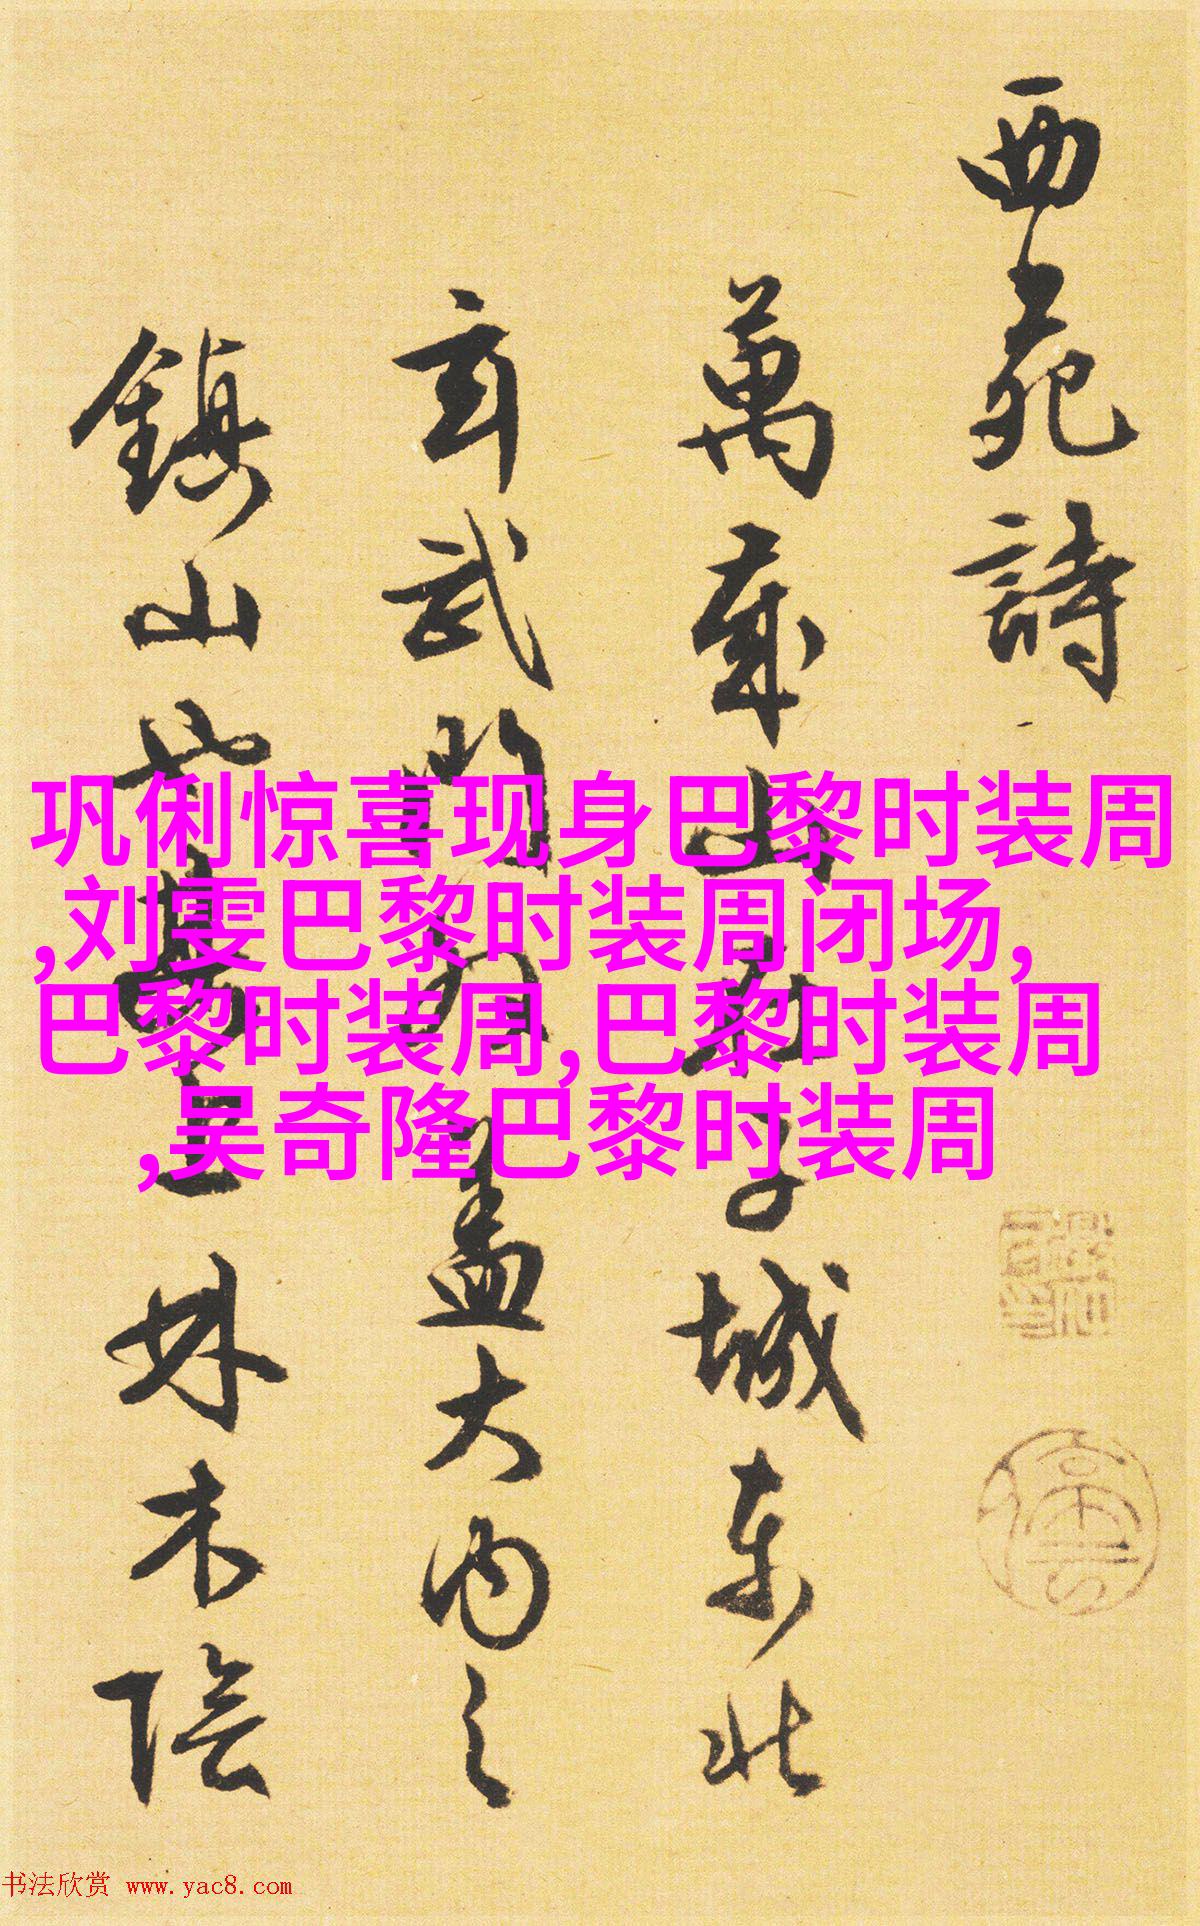 西苑詩
萬歲山在子城東北
玄武門外盖大内之
鎮山也其上林木陰
巩俐惊喜现身巴黎时装周
,刘雯巴黎时装周闭场,
巴黎时装周,巴黎时装周
,吴奇隆巴黎时装周
书法欣赏 www.yac8.com